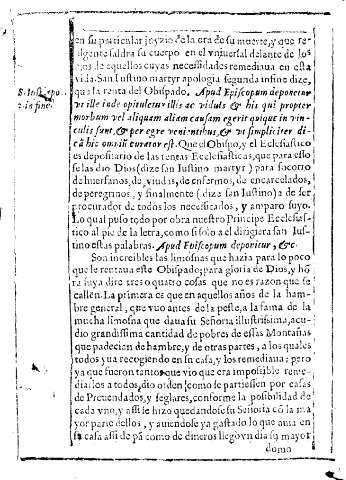 en su particular juyzio de la ora de su muerte, y que re-
ligente saldra su cuerpo en el vniuersal delante de los
ojos de aquellos cuyas necessidades remediaua en esta
vida. San Iustino martyr apologia segunda infine dize,
que la renta del Obispado. Apud Episcopum deponetur
vt ille inde opituletur illis ac viduis & his qui propter
morbum vel aliquam aliam causam egerit quique in vin-
culis sunt, & per egre venientibus, & vt simpliciter di-
cā hic omniū curator est. Que el Obispo, y el Eclesiastico
es depositario de las rentas Ecclesiasticas, que para esso
se las dio Dios (dize san Iustino martyr) para socorro
de huerfanos, de viudas, de enfermos, de encarcelados,
de peregrinos, y finalmente (dize san Iustino) a de ser
procurador de todos los necessitados, y amparo suyo.
Lo qual puso todo por obra nuestro Principe Ecclesias-
tico al pie de la letra, como si solo a el dirigiera san Ius-
tino estas palabras. Apud Episcopum deponitur, &c.
Son increibles las limosnas que hazia para lo poco
que le rentaua este Obispado; para gloria de Dios, y hō
ra suya dire tres o quatro cosas que no es razon que se
callen. La primera es que en aquellos años de la ham-
bre general, que vuo antes de la peste, a la fama de la
mucha limosna que daua su Señoria illustrissima, acu-
dio grandissima cantidad de pobres de essas Montañas
que padecian de hambre, y de otras partes, a los quales
todos yua recogiendo en su casa, y los remediaua; pero
ya que fueron tantos que vio que era impossible reme-
diarlos a todos, dio orden como se partiessen por casas
de Preuendados, y seglares, conforme la posibilidad de
cada vno, y assi se hizo quedandose su Señoria cō la ma
yor parte dellos, y auiendose ya gastado lo que auia en
su casa assi de pā como de dineros llego vn dia su mayor
domo
S. Iust. apo.
2. in fine.